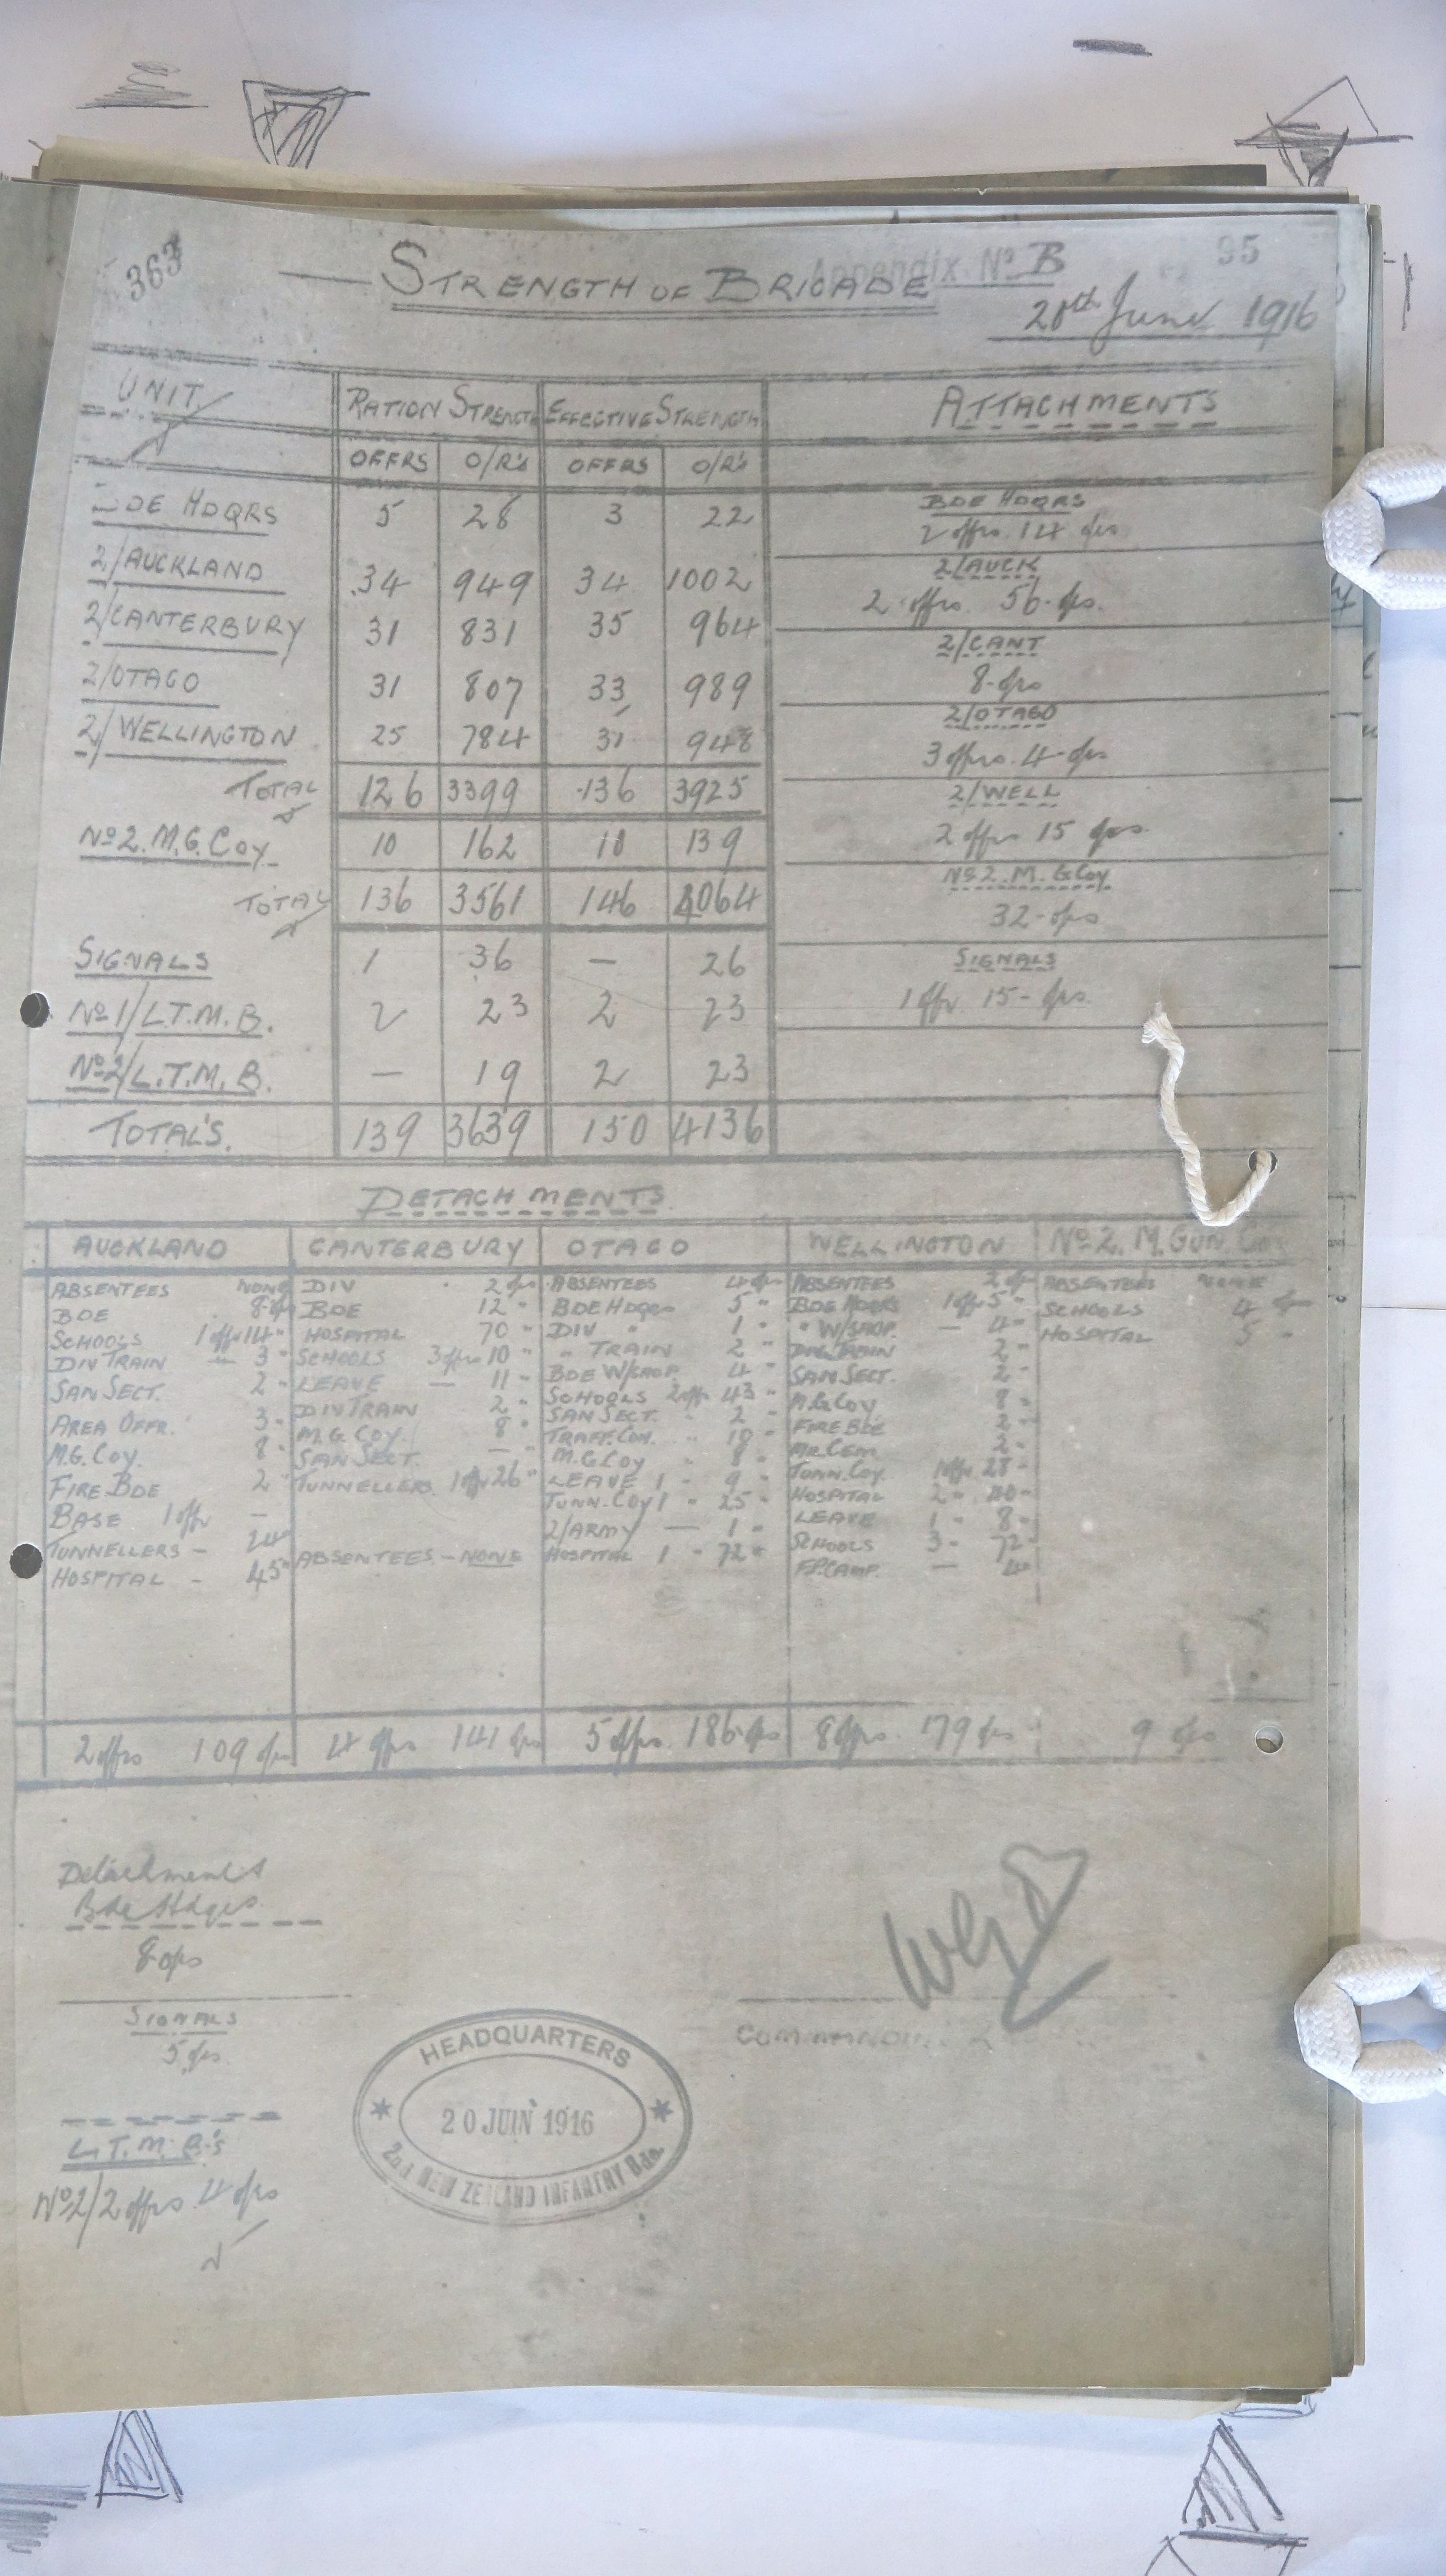 363
Appendix No B
95
STRENGTH OF BRIGADE
20th June 1916
UNIT RATION STRENGTH EFFECTIVE STRENGTH ATTACHMENTS
OFFRS O/R's OFFRS O/R's
BDE HDQRS 5 28 3 22
BDE HDQRS
2 offrs. 14 ors
2/AUCKLAND 34 949 34 1002
2/AUCK
2 offrs. 56 ors.
2/CANTERBURY 31 831 35 964
2/CANT
8 ors
2/OTAGO 31 807 33 989
2/OTAGO
3 offrs. 4 ors
2/WELLINGTON 25 784 31 948
TOTAL 126 3399 136 3925
2/WELL
2 offrs 15 ors.
No 2. M.G. Coy. 10 162 10 139
TOTAL 136 3561 146 4064
No 2. M. G Coy
32 ors
SIGNALS 1 36 — 26
SIGNALS
1 offr 15 ors.
No 1/L.T.M.B. 2 23 2 23
No 2/L.T.M.B. — 19 2 23
TOTAL'S. 139 3639 150 4136
DETACHMENTS
AUCKLAND
ABSENTEES NONE
BDE 8 ors
SCHOOLS 1 offr 14 "
DIV TRAIN — 3 "
SAN SECT. 2 "
AREA OFFR. 3 "
M.G. Coy. 8 "
FIRE BDE 2 "
BASE 1 offr —
TUNNELLERS - 24
HOSPITAL - 45 "
2 offrs 109 ors
CANTERBURY
DIV 2 ors
BDE 12 "
HOSPITAL 70 "
SCHOOLS 3 offrs 10 "
LEAVE — 11 "
DIV TRAIN 2 "
M.G. COY. 8 "
SAN SECT. — "
TUNNELLERS 1 offr 26 "
ABSENTEES - NONE
4 offrs 141 ors
OTAGO
ABSENTEES 4 ors
BDE HDQRS 5 "
DIV " 1 "
" TRAIN 2 "
BDE W/SHOP. 4 "
SCHOOLS 2 offr 43 "
SAN SECT. 2 "
TRAFF. CON. 10 "
M.G. Coy 8 "
LEAVE 1 - 9 "
TUNN. COY 1 " 25 "
2/ARMY — 1 "
HOSPITAL 1 - 72 "
5 offrs. 186 ors
WELLINGTON
ABSENTEES 2 ors
BDE HDQRS 1 offr 5 "
" W/SHOP. — 4 "
DIV TRAIN 2 "
SAN SECT. 2 "
M.G. Coy 8 "
FIRE BDE 2 "
2 "
TUNN. COY. 1 offr 28 "
HOSPITAL 2 "
LEAVE 1 " 8 "
SCHOOLS 3 " 72 "
F.P. CAMP. — 4
8 offrs. 179 ors
No 2. M. GUN. Coy
ABSENTEES NONE
SCHOOLS 4 ors
HOSPITAL 5 "
9 ors
Detachments
Bde Hdqrs
8 ors
SIGNALS
5 ors.
L.T.M. B's
No 2/2 offrs 4 ors
HEADQUARTERS
20 JUIN 1916
2nd NEW ZEALAND INFANTRY Bde